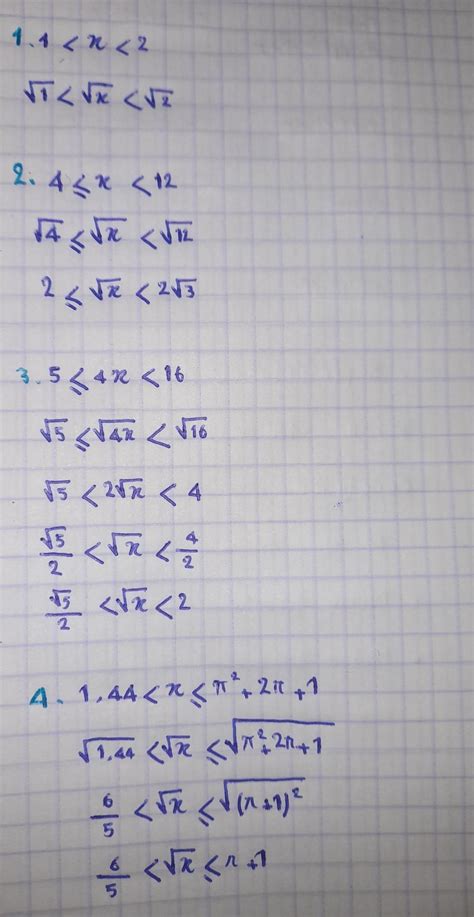 1. 1 < x < 2
√1 < √x < √2
2. 4 ⩽ x < 12
√4 ⩽ √x < √12
2 ⩽ √x < 2√3
3. 5 ⩽ 4x < 16
√5 ⩽ √4x < √16
√5 < 2√x < 4
√5/2 < √x < 4/2
√5/2 < √x < 2
4. 1,44 < x ⩽ π² + 2π + 1
√1,44 < √x ⩽ √π² + 2π + 1
6/5 < √x ⩽ √(π + 1)²
6/5 < √x ⩽ π + 1